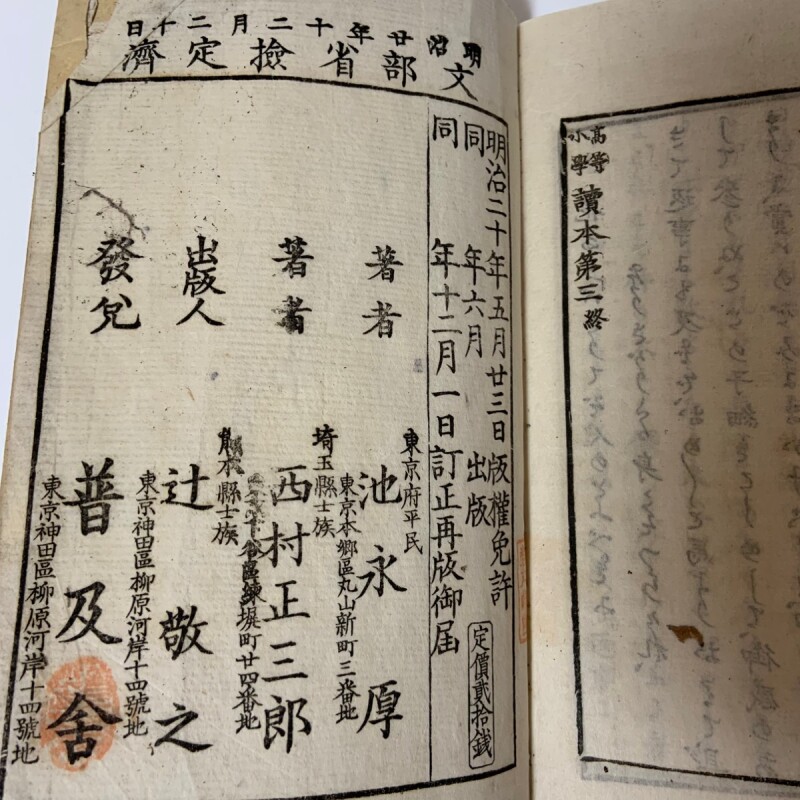 高等
小學
讀本第三終
明治廿年十二月二十日
文部省撿定濟
明治二十年五月廿三日版權免許
同年六月出版
同年十二月一日訂正再版御届
定價貳拾錢
東京府平民
著者 池永厚
東京本鄉區丸山新町三番地
埼玉縣士族
著者 西村正三郎
堀町廿四番地
熊本縣士族
出版人 辻敬之
東京神田區柳原河岸十四號地
發兌 普及舍
東京神田區柳原河岸十四號地